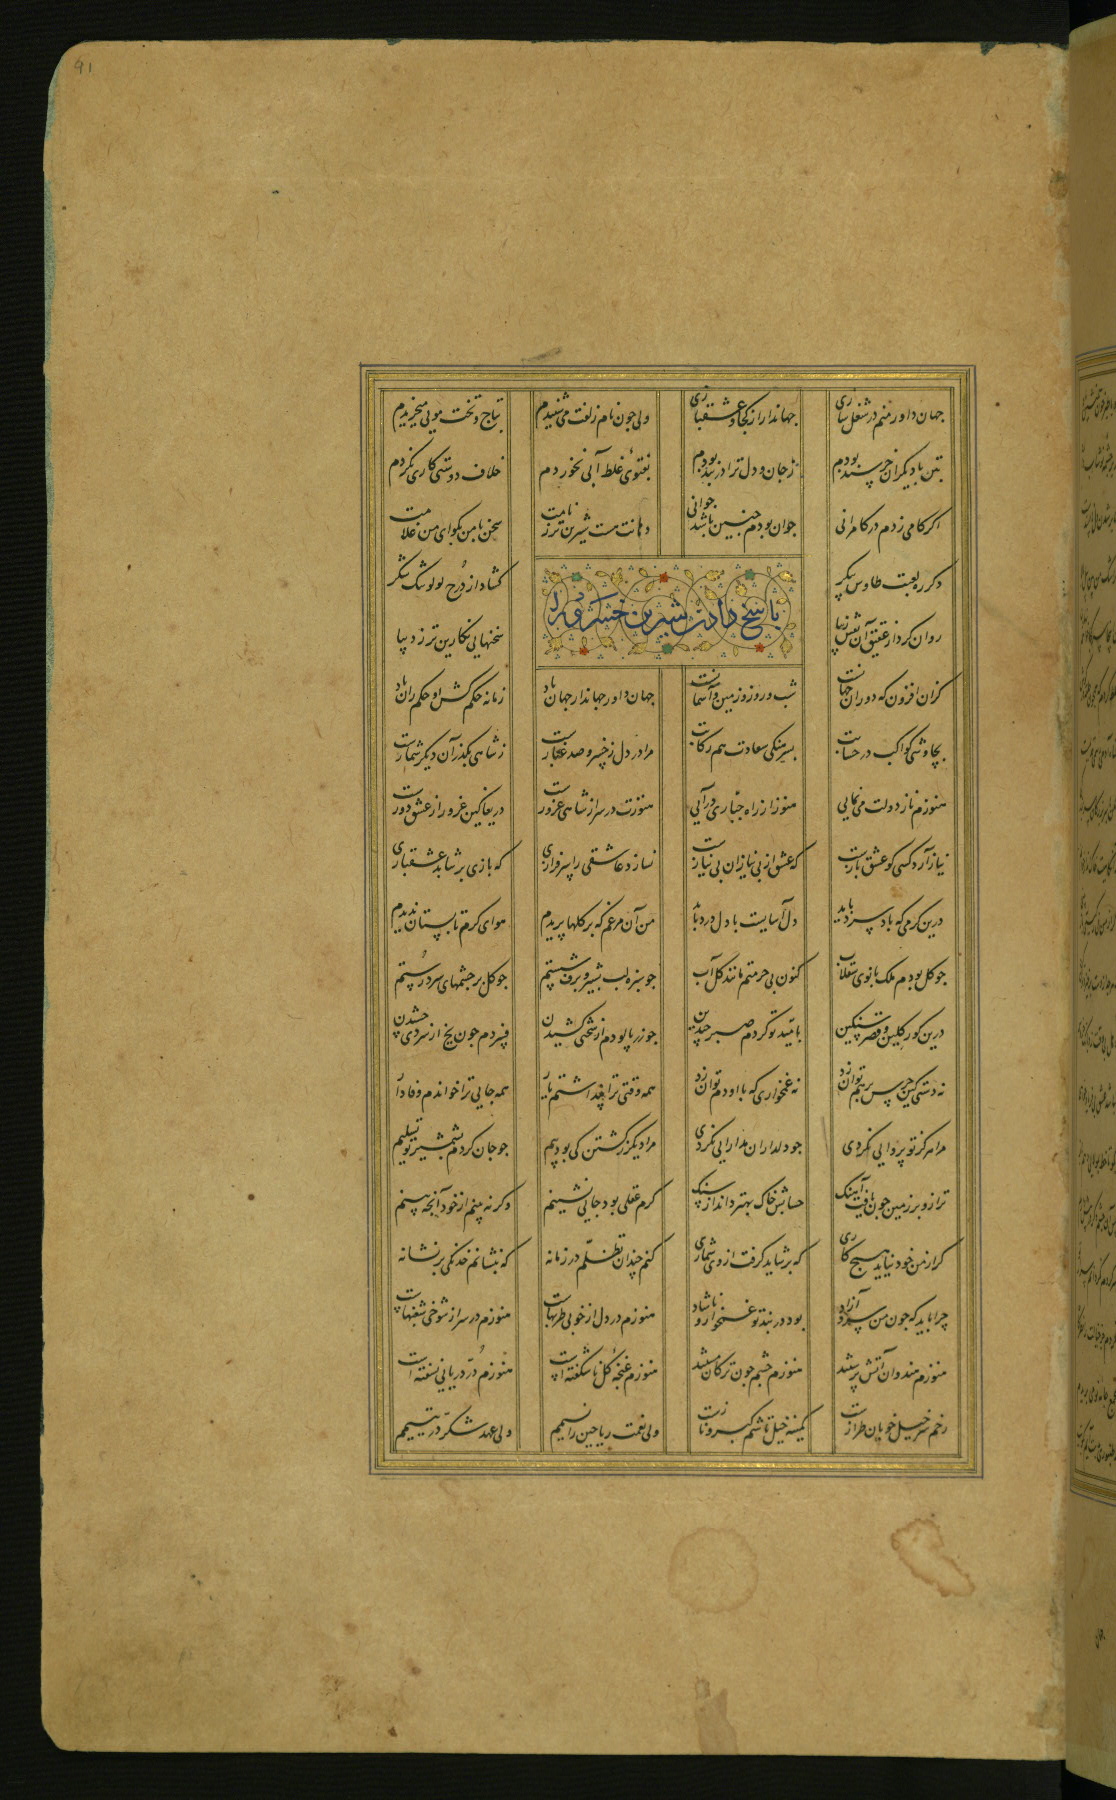 91
جهان داور منم در شغل سازی جهاندار از کجا و عشقبازی ولی چون نام زلفت می شنیدم بتاج و تخت مویی میخریدم
بتن با دیگران خرسند بودم ز جان و دل ترا در بند بودم بفتوی غلط آبی نخوردم خلاف دوستی کاری نکردم
اگر کامی زدم در کامرانی جوان بودم چنین باشد جوانی دهانت ست شیرین تر ز نامت سخن با من بگو ای من غلامت
دگر ره لعبت طاوس پیکر گشاد از درج لولو تنگ شکر
پاسخ دادن شیرین خسرو را
روان کرد از عقیق آن نقش زیبا سخنهایی نگارین تر ز دیبا
کزان افزون که دوران جهانست شب و روز و زمین و آسمانست جهان داور جهاندار جهان باد زمانه حکم کش او حکم ران باد
بچاوشی کواکب در حسابت بسرهنگی سعادت هم رکابت مرا در دل ز خسرو صد غبارست ز شاهی بگذر آن دیگر شمارست
هنوزم ناز دولت می نمایی هنوز از راه جباری درآیی هنوزت در سر از شاهی غرورست دریغا کین غرور از عشق دورست
نیاز آرد کسی کو عشق بازست که عشق از بی نیازان بی نیازست نسازد عاشقی را سرفرازی که بازی بر نتابد عشقبازی
درین گرمی که باد سرد باید دل آسایست با دل درد باید من آن مرغم که بر گلها پریدم هوای گرم تابستان ندیدم
چو گل بودم ملک بانوی سقلاب کنون بی حرمتم مانند گل آب چو سبزه لب بشیر و برف شستم چو گل بر چشمهای سرد رستم
درین گور گلین و قصر سنگین بامید تو کردم صبر چندین چو زر پالودم از سختی کشیدن فسردم چون یخ از سردی چشیدن
نه دستی کین جرس بر هم توان زد نه غمخواری که با او دم توان زد همه وقتی ترا پنداشتم یار همه جایی ترا خواندم وفادار
مرا هرگز تو پروایی نکردی چو دلداران مدارایی نکردی مرا دیگر ز کشتن کی بود بیم چو جان کردم بشمشیر تو تسلیم
ترازو بر زمین چون یافت آهنگ حسابش خاک بهتر داند از سنگ گرم عقلی بود جایی نشینم وگرنه بینم از خود آنچه بینم
گر از من خود نیاید هیچ کاری که برشاید گرفت از وی شماری کنم چندان تظلم در زمانه که بنشانم خدنگی بر نشانه
چرا باید که چون من سرو آزاد بود در بند تو غمخوار و ناشاد هنوزم در دل از خوبی طربهاست هنوزم در سر از شوخی شغبهاست
هنوزم هندوان آتش پرستند هنوزم چشم چون ترکان مستند هنوزم غنچه گل ناشکفته است هنوزم در دریایی نسفته است
رخم سرخیل خوبان طرازست کمینه خیلتاشم کبر و نازست ولی نعمت ریاحین را نسیمم ولی عهد شکر در یتیمم